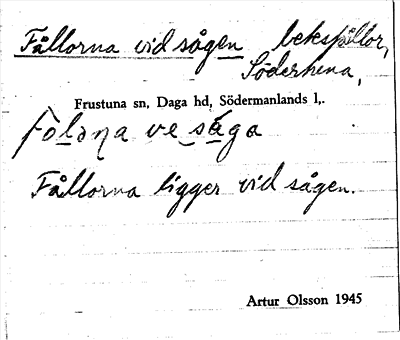 Fållorna vid sågen beksfållor,
Söderhena,
Frustuna sn, Daga hd, Södermanlands l,.
fòlɔɳa ve sǻga
Fållorna ligger vid sågen.
Artur Olsson 1945